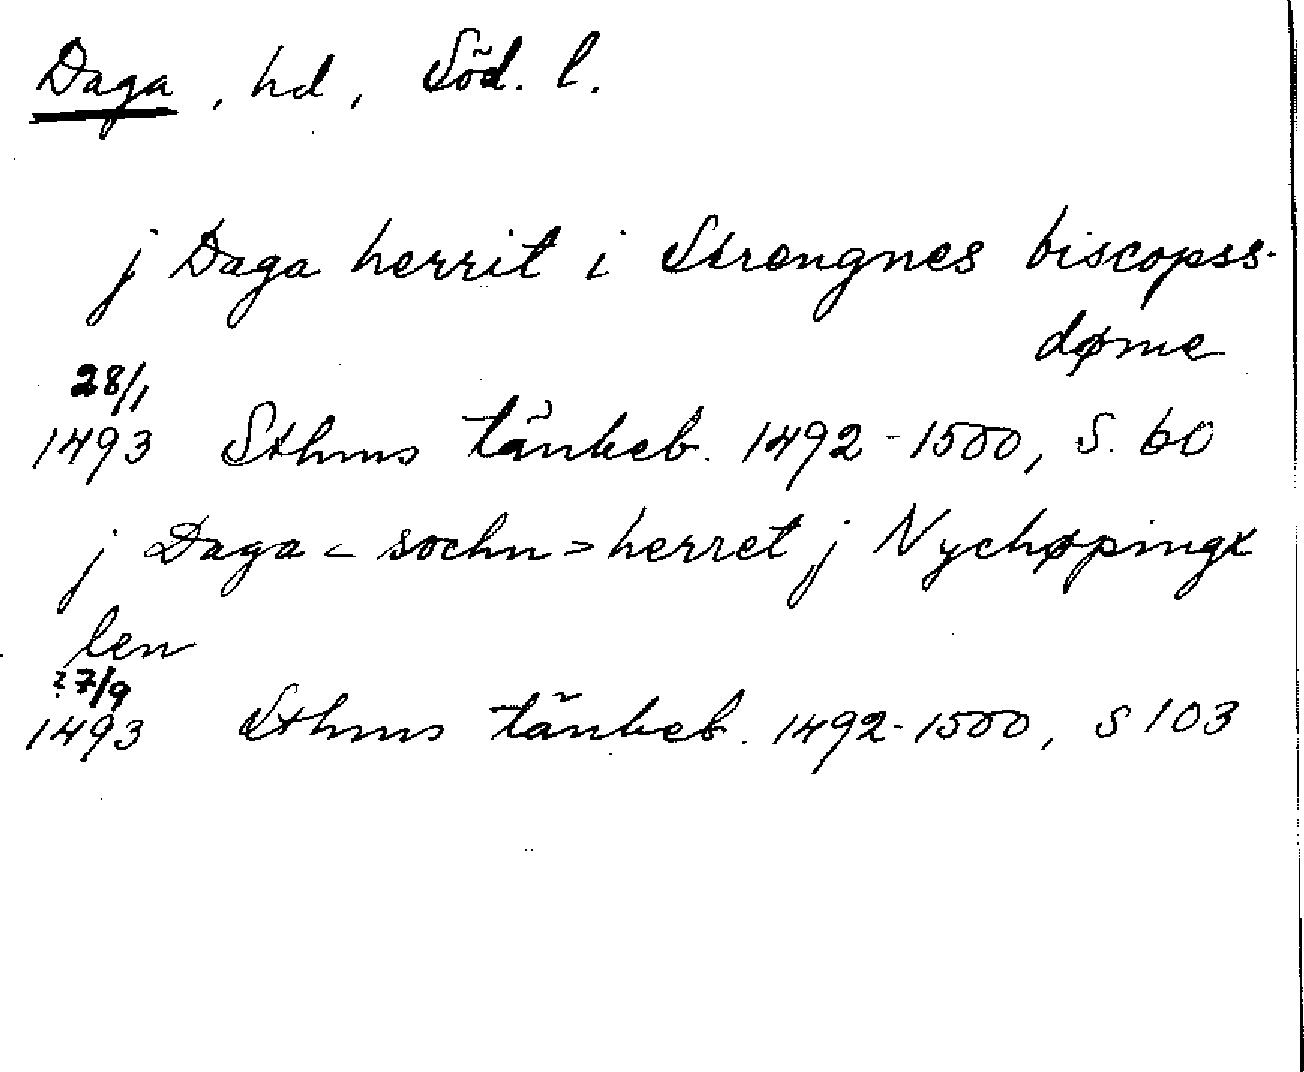 Daga, hd, Söd. l.
j Daga herrit i Strengnes biscopss-
døme
28/1
1493 Sthms tänkeb. 1492-1500, S. 60
j Daga <sochn> herret j Nychøpingx
len
27/9
1493 Sthms tänkeb. 1492-1500, S 103